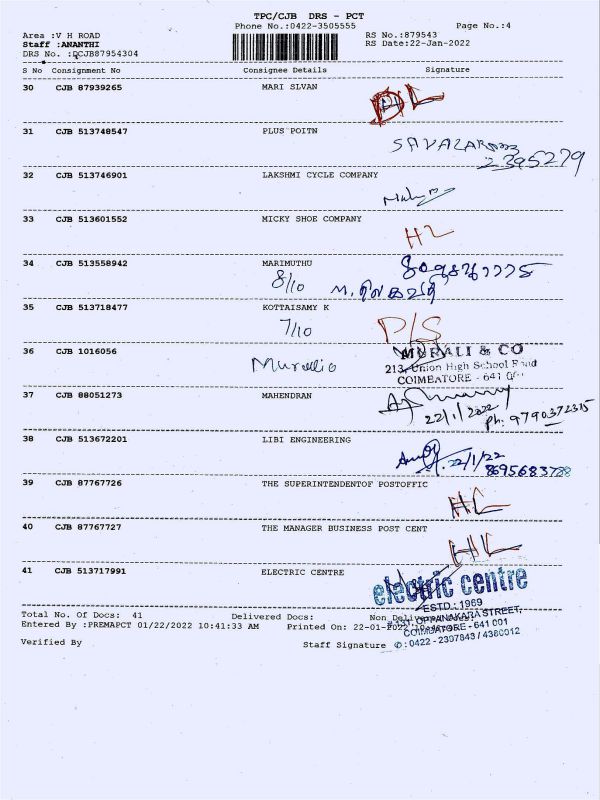 TPC/CJB DRS - PCT
Phone No.:0422-3505555
Page No.:4
Area :V H ROAD
RS No.:879543
Staff :ANANTHI
RS Date:22-Jan-2022
DRS No. :DCJB87954304
S No Consignment No Consignee Details Signature
30 CJB 87939265 MARI SLVAN
DL
31 CJB 513748547 PLUS POITN
2395279
32 CJB 513746901 LAKSHMI CYCLE COMPANY
33 CJB 513601552 MICKY SHOE COMPANY
HL
34 CJB 513558942 MARIMUTHU
8/10
35 CJB 513718477 KOTTAISAMY K
7/10 P/S
36 CJB 1016056
MURALI & CO
213, Union High School Road
COIMBATORE - 641 001
37 CJB 88051273 MAHENDRAN
22/1/2022
Ph: 9790372315
38 CJB 513672201 LIBI ENGINEERING
22/1/22
8695683788
39 CJB 87767726 THE SUPERINTENDENTOF POSTOFFIC
HL
40 CJB 87767727 THE MANAGER BUSINESS POST CENT
HL
41 CJB 513717991 ELECTRIC CENTRE
electric centre
ESTD : 1969
Total No. Of Docs: 41 Delivered Docs: Non Delivered Docs:
OPPANAKARA STREET,
Entered By :PREMAPCT 01/22/2022 10:41:33 AM Printed On: 22-01-2022
COIMBATORE - 641 001
Verified By Staff Signature
✆: 0422 - 2397843 / 4380012